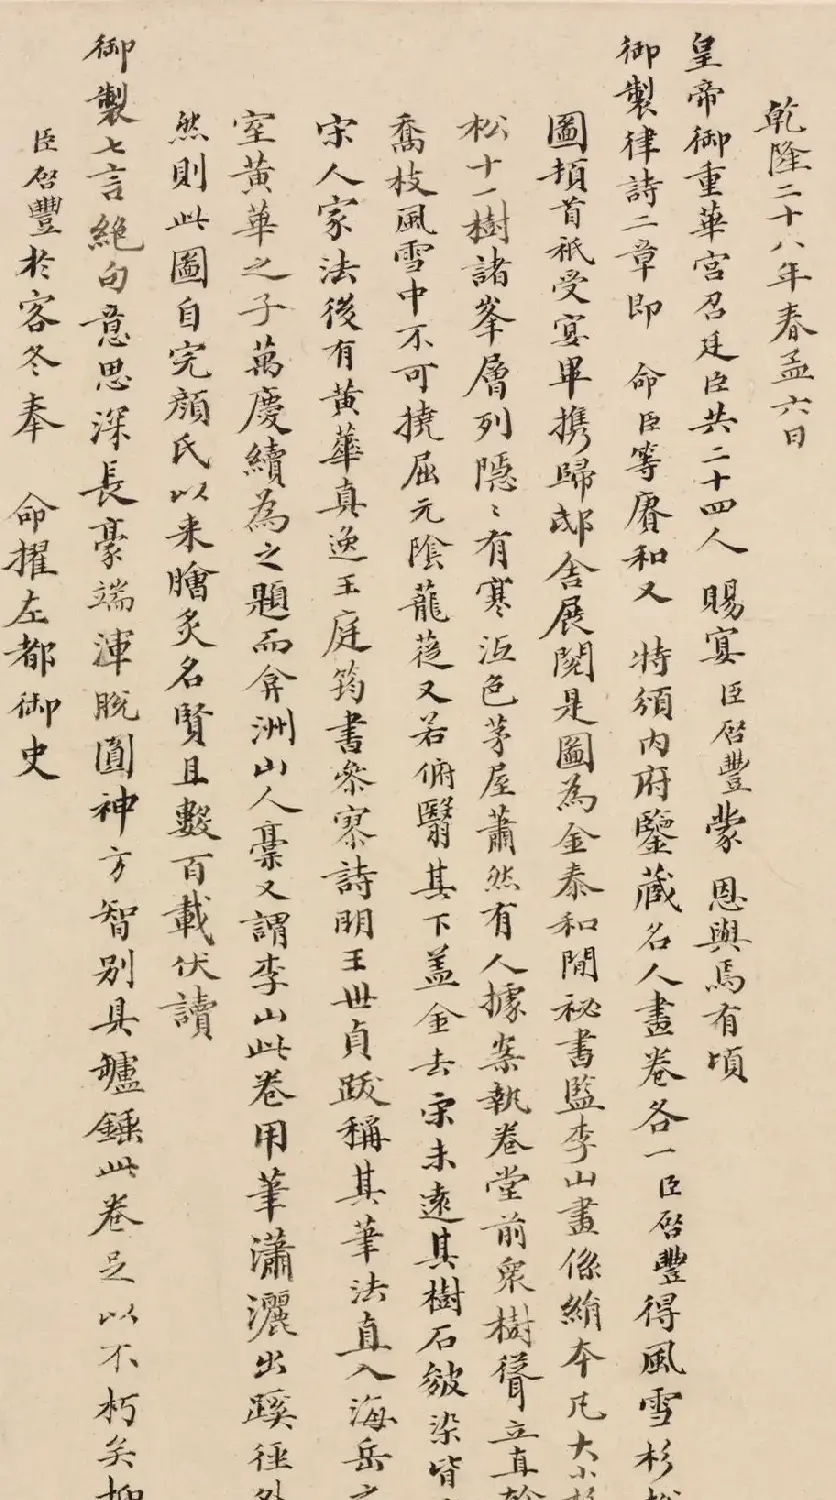 乾隆二十八年春孟六日
皇帝御重華宮召廷臣共二十四人 賜宴臣啓豐蒙 恩與焉有頃
御製律詩二章即 命臣等賡和又 特頒內府鑒藏名人畫卷各一臣啓豐得風雪杉松
圖頓首祇受宴畢攜歸邸舍展閱是圖為金泰和間秘書監李山畫係絹本凡大小杉
松十一樹諸峯層列隱〻有寒沍色茅屋蕭然有人據案執卷堂前眾樹聳立直幹
喬枝風雪中不可撓屈元陰蘢蓯又若俯翳其下蓋金去宋未遠其樹石皴染皆
宋人家法後有黃華真逸王庭筠書參寥詩明王世貞跋稱其筆法直入海岳之
室黃華之子萬慶續為之題而弇洲山人稾又謂李山此卷用筆瀟灑出蹊徑外
然則此圖自完顏氏以来膾炙名賢且數百載伏讀
御製七言絕句意思深長豪端渾脫圓神方智別具鑪錘此卷足以不朽矣抑
臣啓豐於客冬奉 命擢左都御史